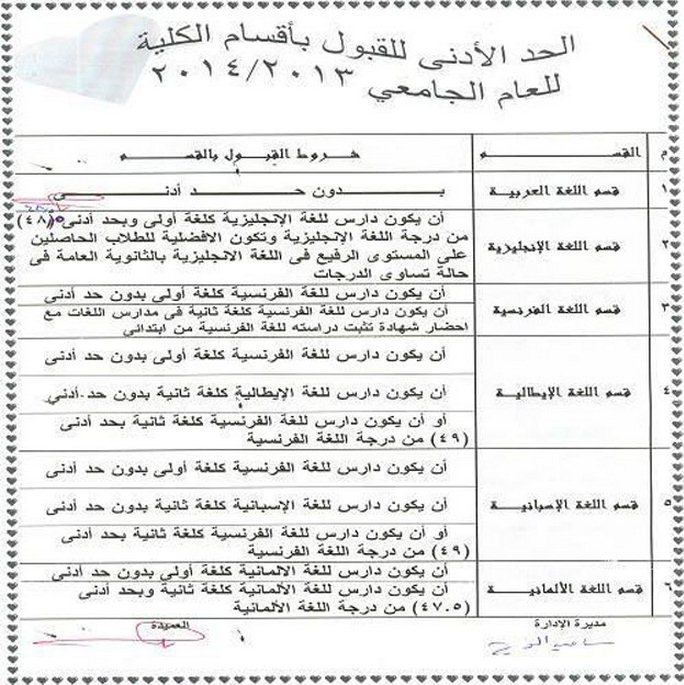 الحد الأدنى للقبول بأقسام الكلية
للعام الجامعي ٢٠١٤/٢٠١٣
م القسم شروط القبول بالقسم
١ قسم اللغة العربية بدون حد أدنى
٢ قسم اللغة الإنجليزية
أن يكون دارس للغة الإنجليزية كلغة أولى وبحد أدنى (٤٨)
من درجة اللغة الإنجليزية وتكون الافضلية للطلاب الحاصلين
على المستوى الرفيع فى اللغة الانجليزية بالثانوية العامة فى
حالة تساوى الدرجات
٣ قسم اللغة الفرنسية
أن يكون دارس للغة الفرنسية كلغة أولى بدون حد أدنى
أن يكون دارس للغة الفرنسية كلغة ثانية فى مدارس اللغات مع
احضار شهادة تثبت دراسته للغة الفرنسية من ابتدائى
٤ قسم اللغة الإيطالية
أن يكون دارس للغة الفرنسية كلغة أولى بدون حد أدنى
أن يكون دارس للغة الإيطالية كلغة ثانية بدون حد أدني
أو أن يكون دارس للغة الفرنسية كلغة ثانية بحد أدنى
(٤٩) من درجة اللغة الفرنسية
٥ قسم اللغة الإسبانية
أن يكون دارس للغة الفرنسية كلغة أولى بدون حد أدنى
أن يكون دارس للغة الإسبانية كلغة ثانية بدون حد أدنى
أو أن يكون دارس للغة الفرنسية كلغة ثانية بحد أدنى
(٤٩) من درجة اللغة الفرنسية
٦ قسم اللغة الألمانية
أن يكون دارس للغة الالمانية كلغة أولى بدون حد أدنى
أن يكون دارس للغة الألمانية كلغة ثانية وبحد أدنى
(٤٧.٥) من درجة اللغة الألمانية
مديرة الإدارة العميدة